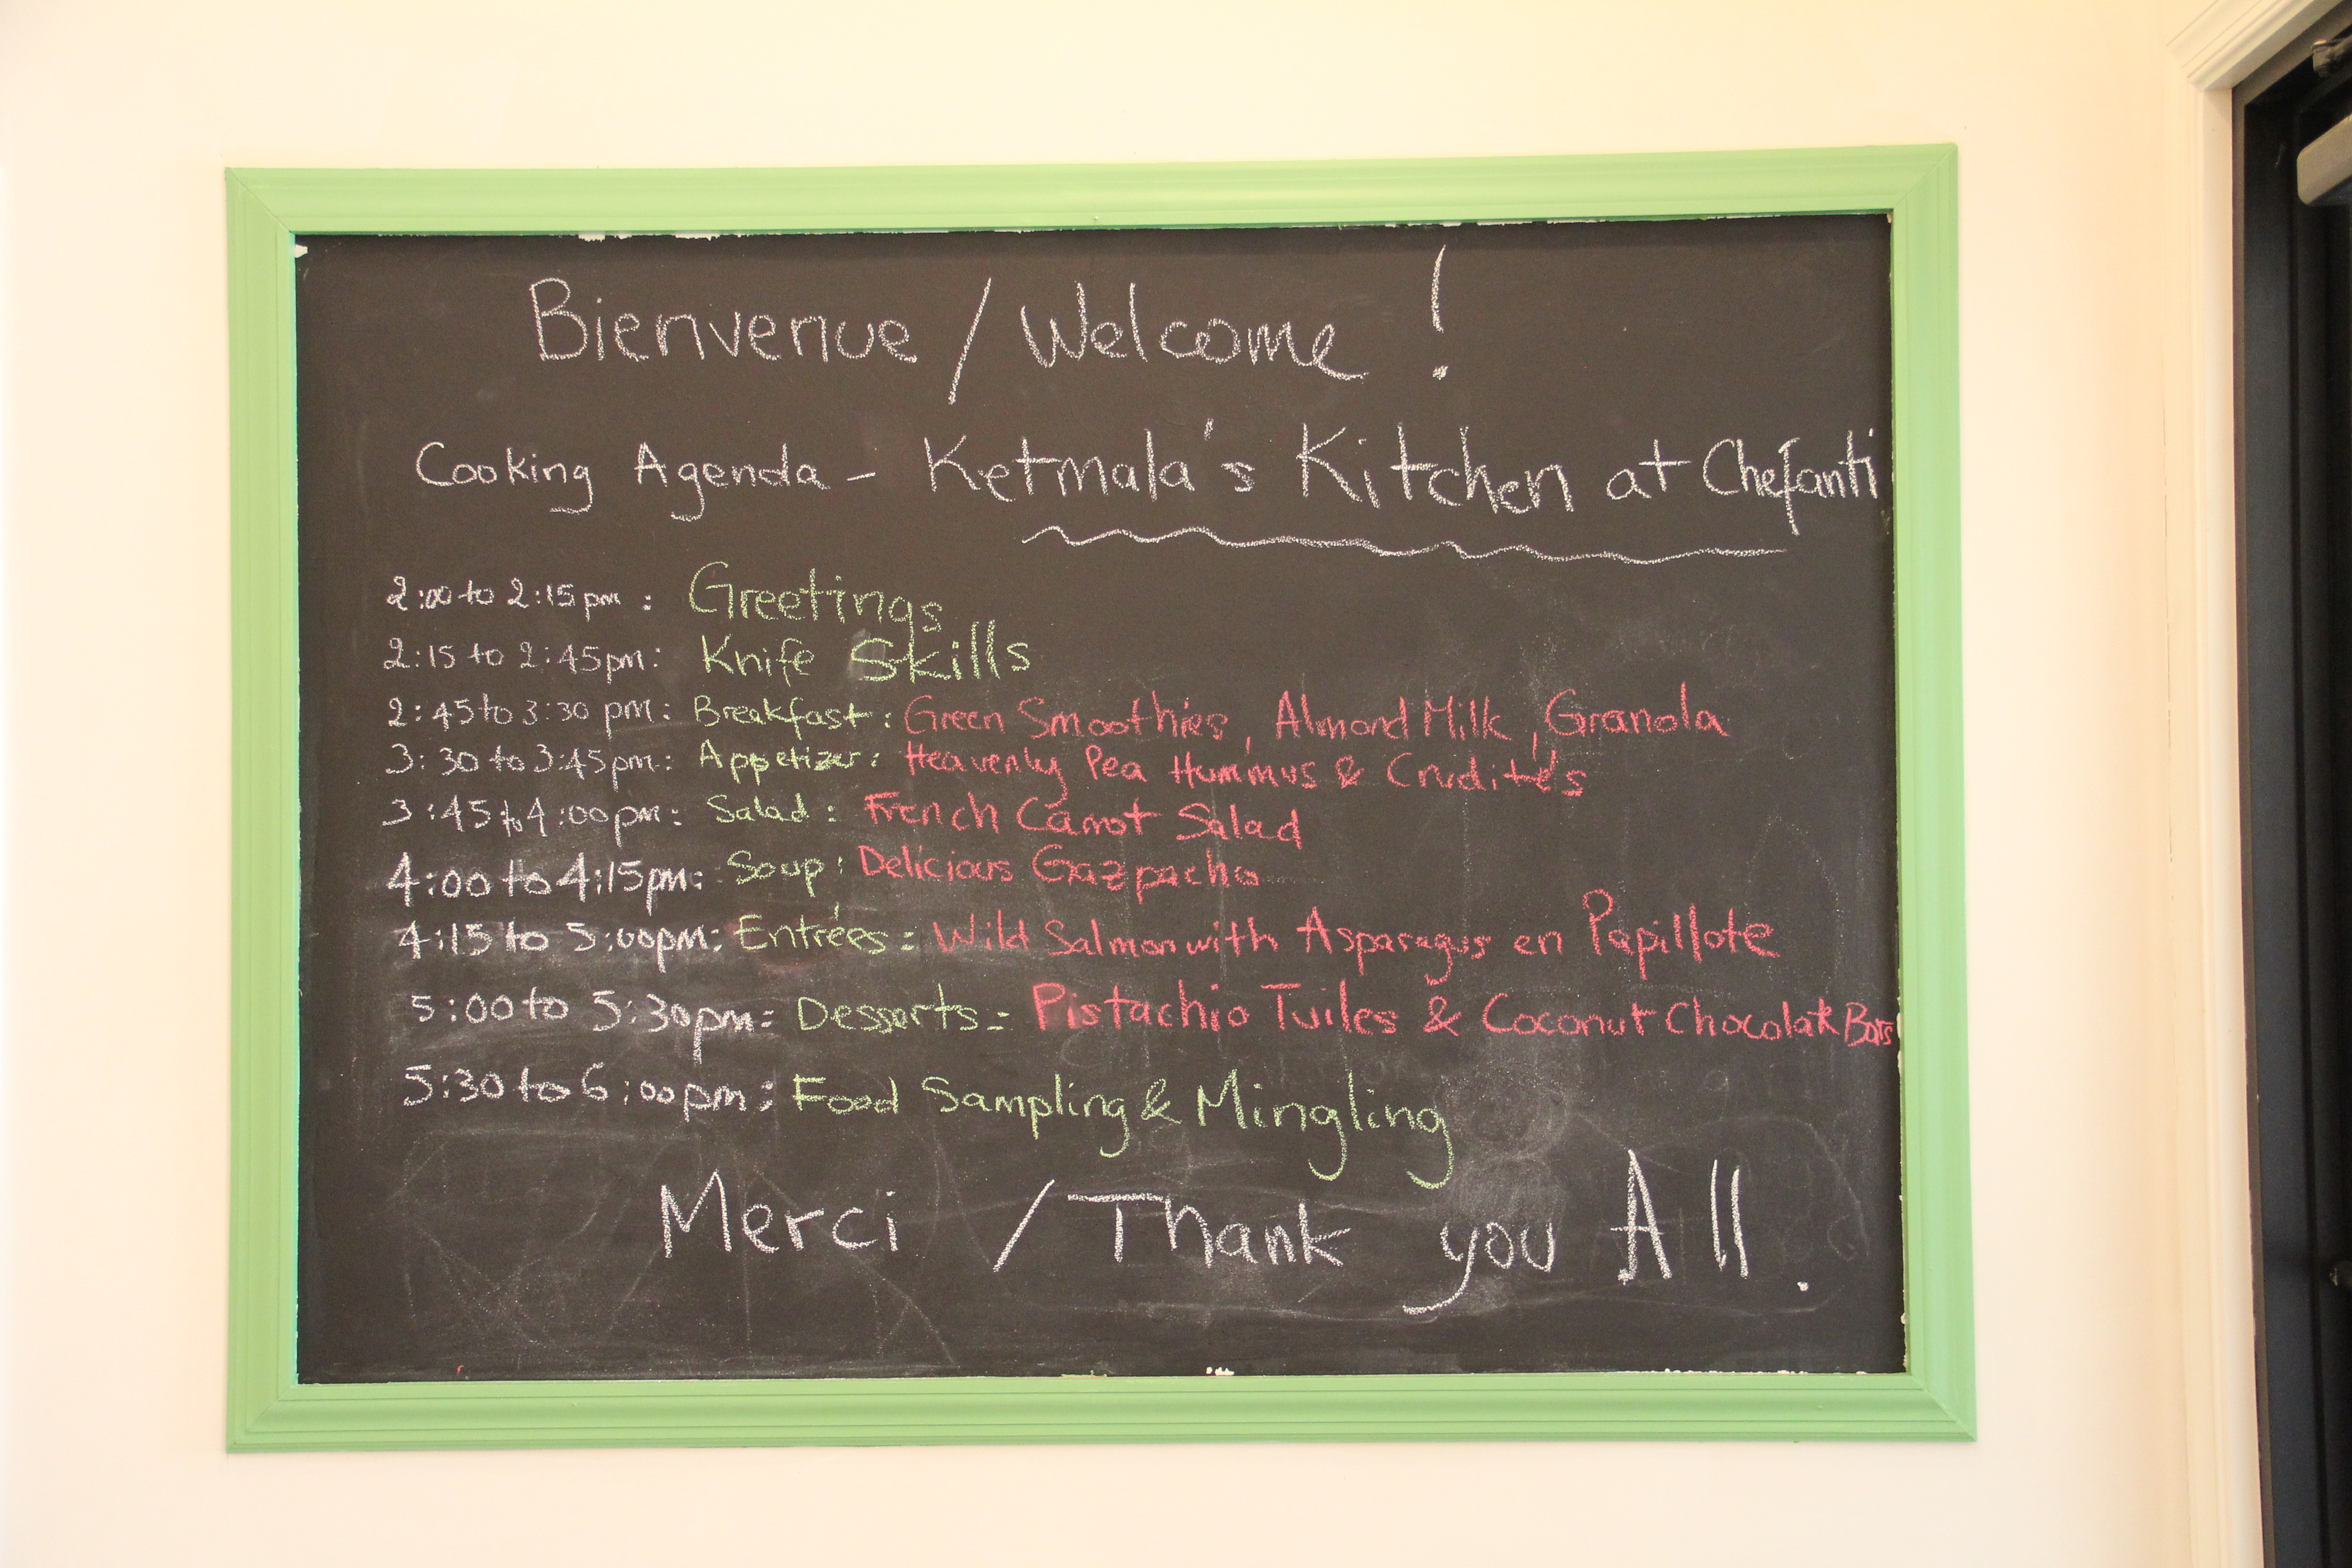 Bienvenue / Welcome !
Cooking Agenda - Ketmala's Kitchen at Chefanti
2:00 to 2:15 pm : Greetings
2:15 to 2:45pm: Knife Skills
2:45 to 3:30 pm: Breakfast: Green Smoothies, Almond Milk, Granola
3:30 to 3:45pm: Appetizer: Heavenly Pea Hummus & Crudités
3:45 to 4:00pm: Salad: French Carrot Salad
4:00 to 4:15pm: Soup: Delicious Gazpacho
4:15 to 5:00pm: Entrées: Wild Salmon with Asparagus en Papillote
5:00 to 5:30pm: Desserts: Pistachio Tuiles & Coconut Chocolate Bars
5:30 to 6:00pm: Food Sampling & Mingling
Merci / Thank you All.